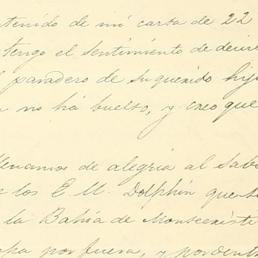 ntenido de mi carta de 22
tengo el sentimiento de decir
l paradero de su querido hijo
no ha buelto, y creo que
llenamos de alegria al sab
los E. U. Dolphin que
la Bahia de Montecristi
por fuera, y